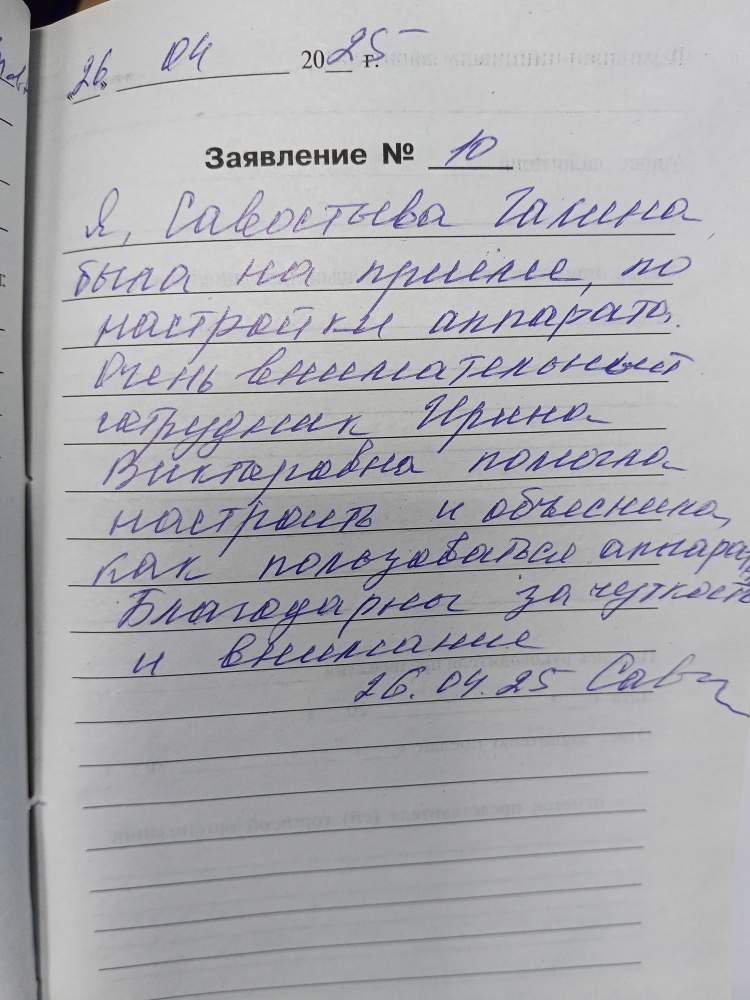 "26" 04 2025 г.
Заявление № 10
Я, Савостьева Галина
была на приеме, по
настройки аппарата.
Очень внимательный
сотрудник Ирина
Викторовна помогла
настроить и объеснила,
как пользоваться аппарат
Благодарны за чуткость
и внимание
26.04.25